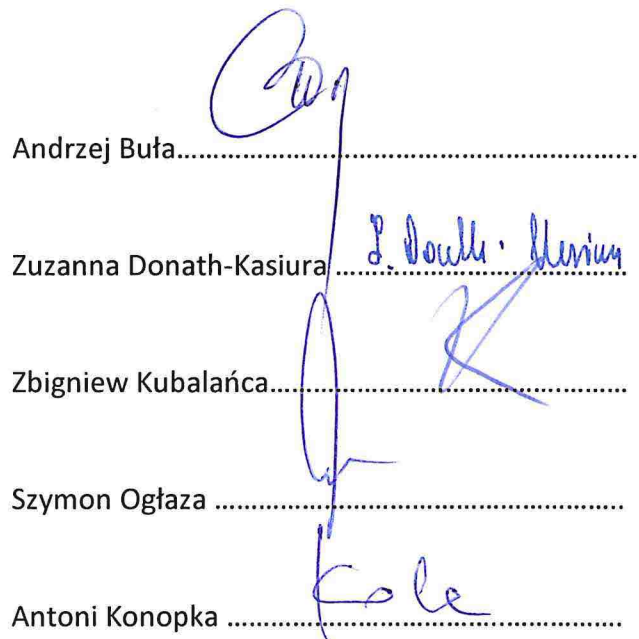 Andrzej Buła................................................................
Zuzanna Donath-Kasiura ........................................
Zbigniew Kubalańca..................................................
Szymon Ogłaza .........................................................
Antoni Konopka .......................................................